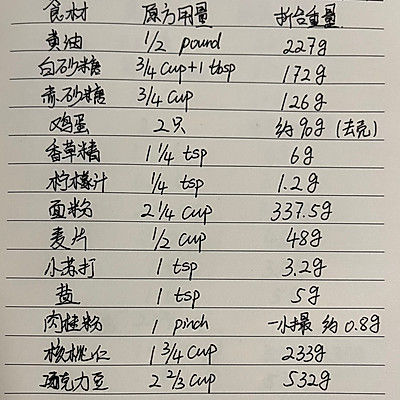 食材 原方用量 折合重量
黄油 1/2 pound 227g
白砂糖 3/4 cup+1 tbsp 172g
赤砂糖 3/4 cup 126g
鸡蛋 2只 约90g (去壳)
香草精 1 1/4 tsp 6g
柠檬汁 1/4 tsp 1.2g
面粉 2 1/4 cup 337.5g
麦片 1/2 cup 48g
小苏打 1 tsp 3.2g
盐 1 tsp 5g
肉桂粉 1 pinch 一小撮 约0.8g
核桃仁 1 3/4 cup 233g
巧克力豆 2 2/3 cup 532g